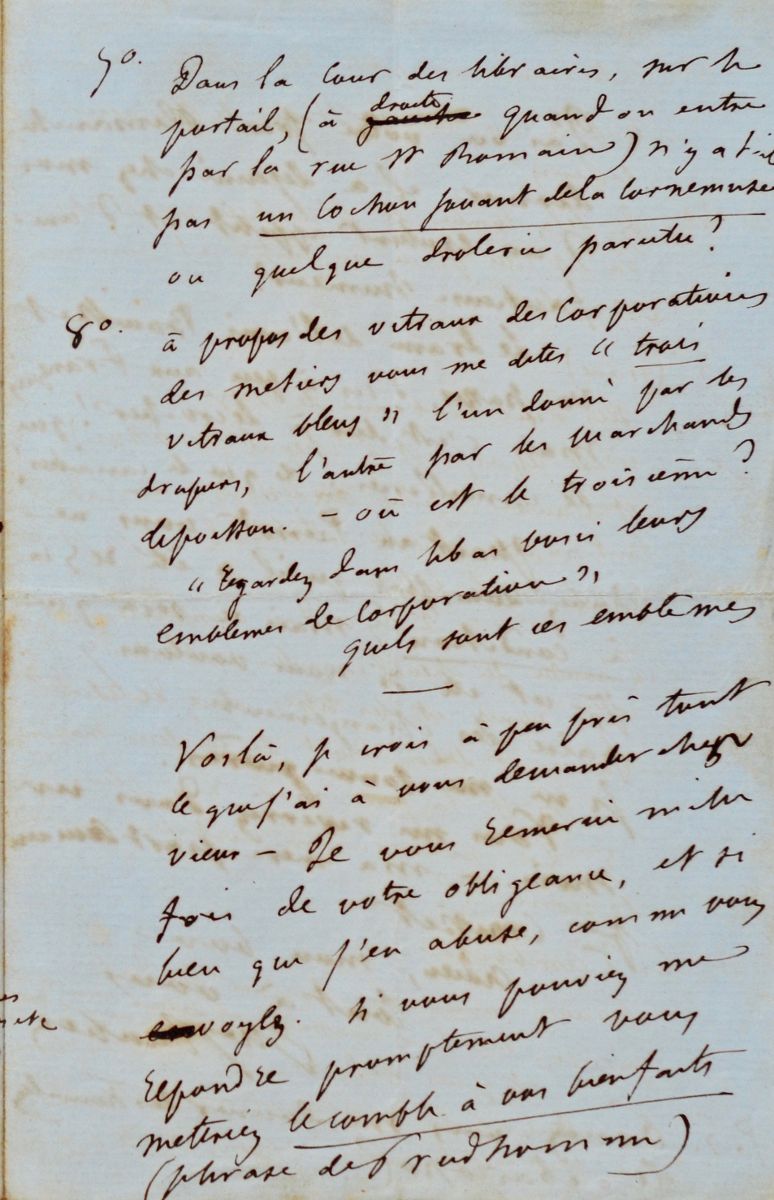 7º. Dans la cour des libraires, sur le
portail, (à droite gauche quand on entre
par la rue St Romain) n'y a t-il
pas un cochon jouant de la cornemuse
ou quelque drolerie pareille?
8º. à propos des vitraux des corporations
des metiers vous me dites « trois
vitraux bleus » l'un donné par les
drapiers, l'autre par les marchands
de poisson. - où est le troisième?
« Regardez dans le bas voici leurs
emblemes de Corporation »,
quels sont ces emblemes
Voilà, je crois à peu près tout
ce que j'ai à vous demander cher
vieux - Je vous remercie mille
fois de votre obligeance, et si
bien que j'en abuse, comme vous
voyez. si vous pouviez me
repondre promptement vous
metteriez le comble à vos bienfaits
(phrase de Prudhomme)